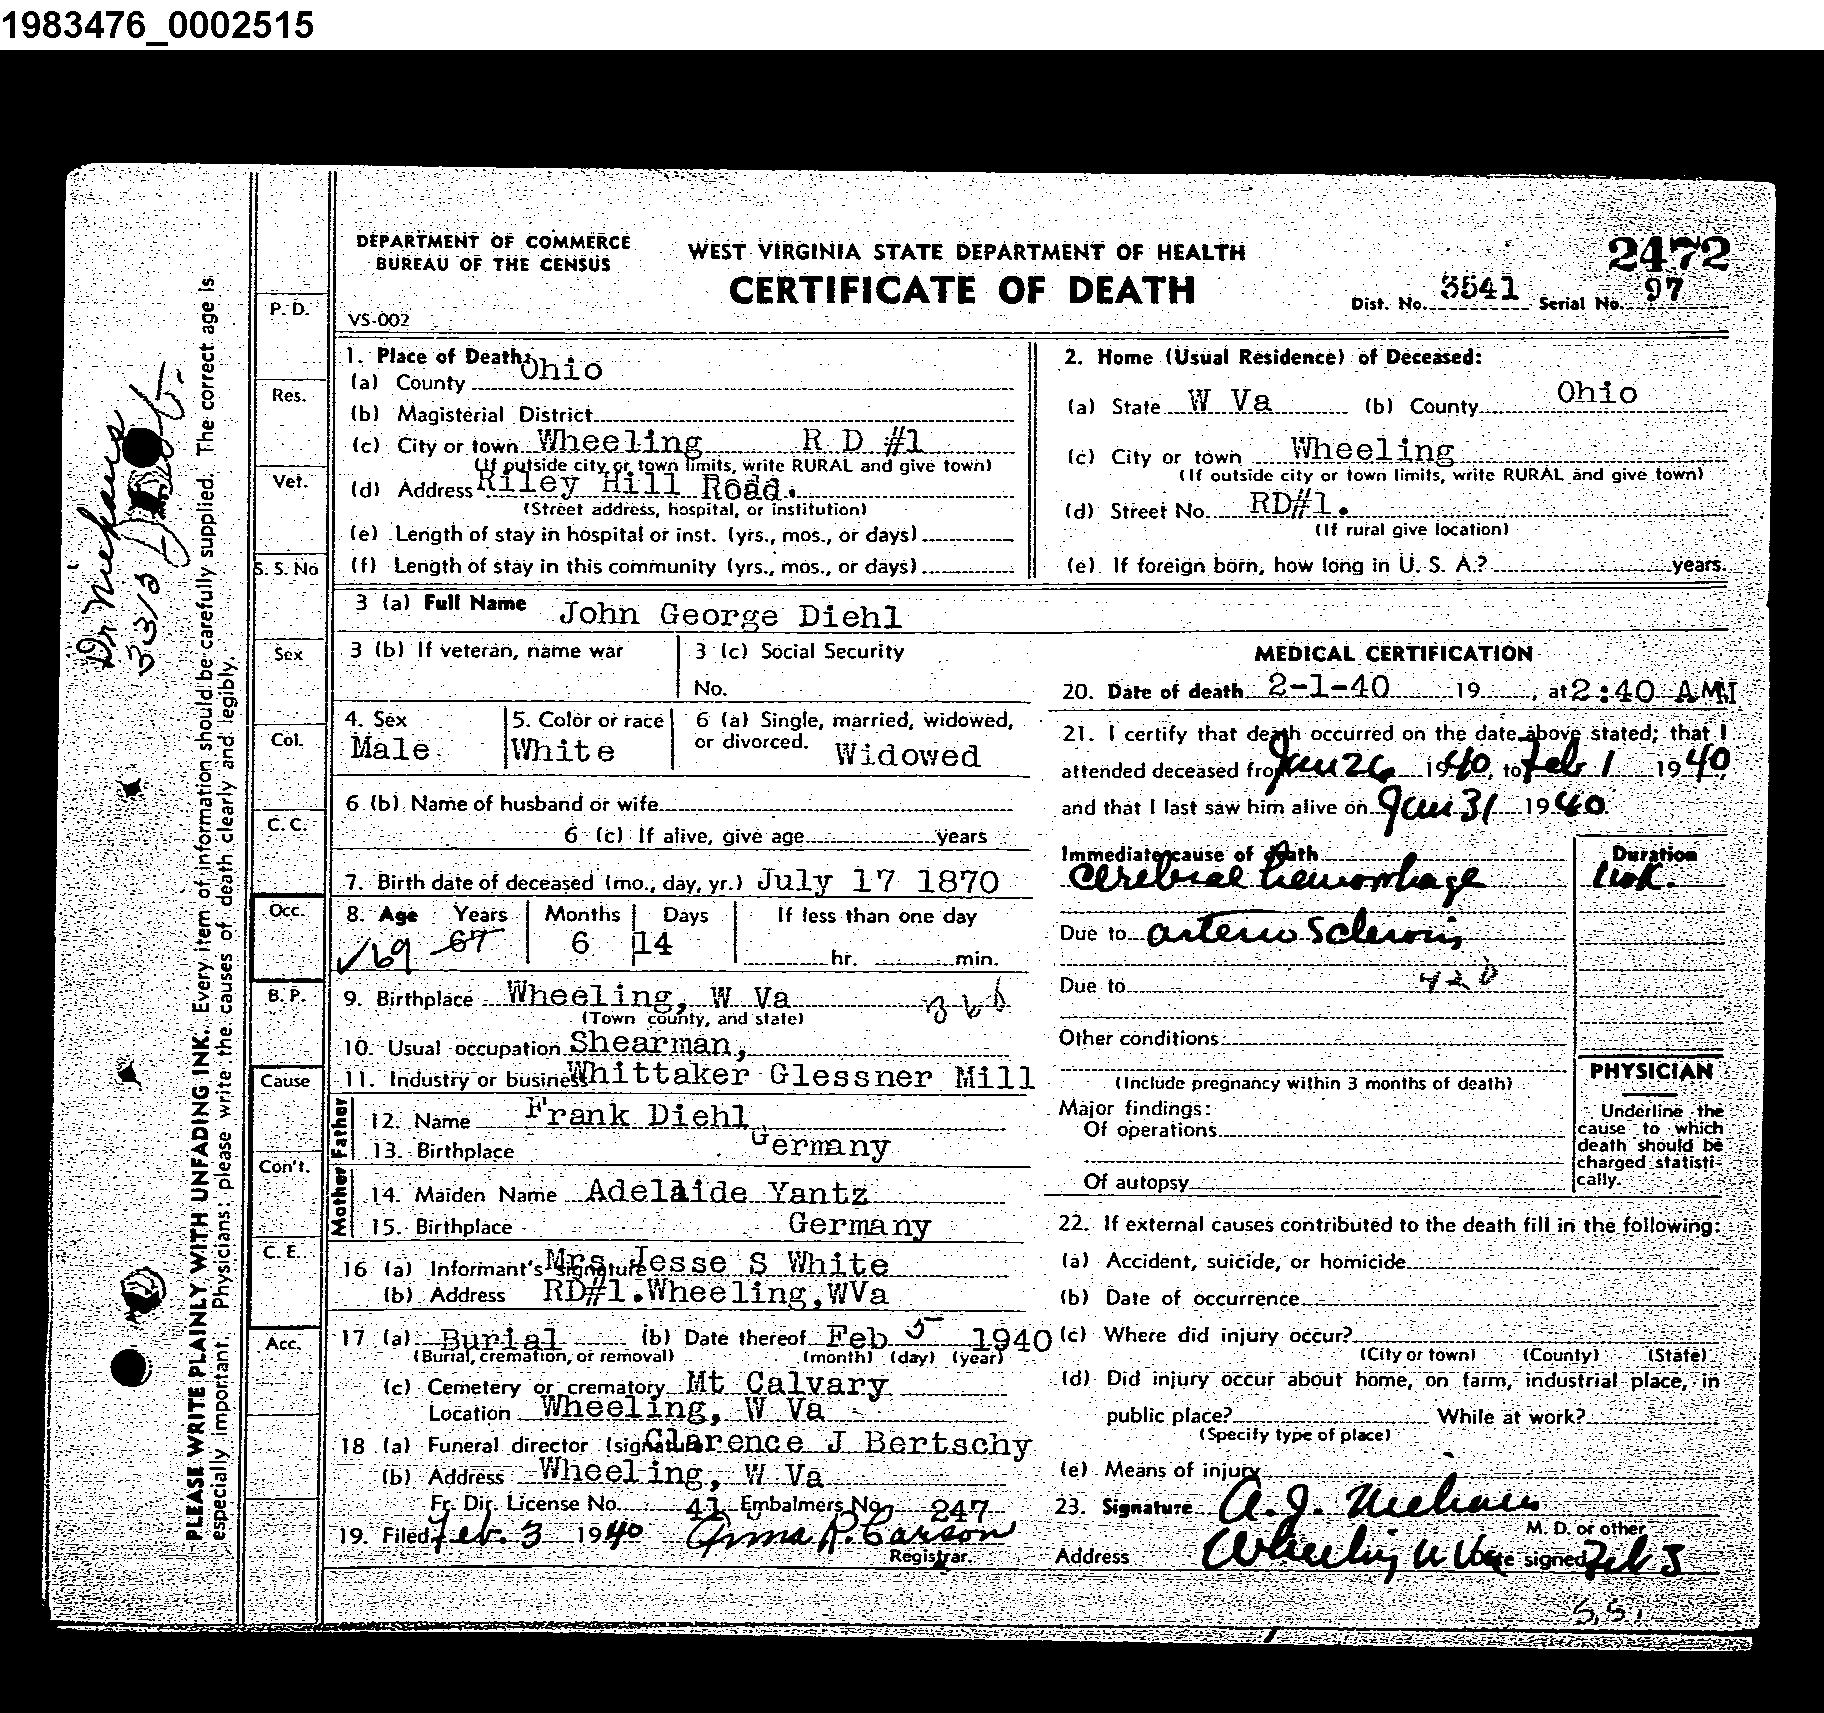 1983476_0002515
DEPARTMENT OF COMMERCE
BUREAU OF THE CENSUS
WEST VIRGINIA STATE DEPARTMENT OF HEALTH
CERTIFICATE OF DEATH
2472
Dist. No. 3541 Serial No. 97
VS-002
1. Place of Death:
(a) County Ohio
(b) Magisterial District
(c) City or town Wheeling R D #1
(If outside city or town limits, write RURAL and give town)
(d) Address Riley Hill Road.
(Street address, hospital, or institution)
(e) Length of stay in hospital or inst. (yrs., mos., or days)
(f) Length of stay in this community (yrs., mos., or days)
2. Home (Usual Residence) of Deceased:
(a) State W Va (b) County Ohio
(c) City or town Wheeling
(If outside city or town limits, write RURAL and give town)
(d) Street No. RD#1.
(If rural give location)
(e) If foreign born, how long in U. S. A.? years.
3 (a) Full Name John George Diehl
3 (b) If veteran, name war
3 (c) Social Security
No.
4. Sex
Male
5. Color or race
White
6 (a) Single, married, widowed,
or divorced. Widowed
6 (b) Name of husband or wife
6 (c) If alive, give age years
7. Birth date of deceased (mo., day, yr.) July 17 1870
8. Age Years Months Days If less than one day
69 67 6 14 hr. min.
9. Birthplace Wheeling, W Va
(Town county, and state)
10. Usual occupation Shearman,
11. Industry or business Whittaker Glessner Mill
Father
12. Name Frank Diehl
13. Birthplace Germany
Mother
14. Maiden Name Adelaide Yantz
15. Birthplace Germany
16 (a) Informant's signature Mrs Jesse S White
(b) Address RD#1.Wheeling,WVa
17 (a) Burial (b) Date thereof Feb 5 1940
(Burial, cremation, or removal) (month) (day) (year)
(c) Cemetery or crematory Mt Calvary
Location Wheeling, W Va
18 (a) Funeral director (signature) Clarence J Bertschy
(b) Address Wheeling, W Va
Fr. Dir. License No. 41 Embalmers No. 247
19. Filed Feb. 3 1940 Anna R. Carson
Registrar.
MEDICAL CERTIFICATION
20. Date of death 2-1-40 19 , at 2:40 AM M
21. I certify that death occurred on the date above stated; that I
attended deceased from Jan 26 1940, to Feb 1 1940
and that I last saw him alive on Jan 31 1940
Immediate cause of death
Cerebral hemorrhage
Duration
1 wk.
Due to arterio sclerosis
Due to
Other conditions
(Include pregnancy within 3 months of death)
Major findings:
Of operations
Of autopsy
PHYSICIAN
Underline the
cause to which
death should be
charged statisti-
cally.
22. If external causes contributed to the death fill in the following:
(a) Accident, suicide, or homicide
(b) Date of occurrence
(c) Where did injury occur?
(City or town) (County) (State)
(d) Did injury occur about home, on farm, industrial place, in
public place? While at work?
(Specify type of place)
(e) Means of injury
23. Signature A. J.
M. D. or other
Address Wheeling W Va Date signed Feb 3
P. D.
Res.
Vet.
S. S. No
Sex
Col.
C. C.
Occ.
B. P.
Cause
Con't.
C. E.
Acc.
PLEASE WRITE PLAINLY WITH UNFADING INK. Every item of information should be carefully supplied. The correct age is
especially important. Physicians: please write the causes of death clearly and legibly.
Dr
3313